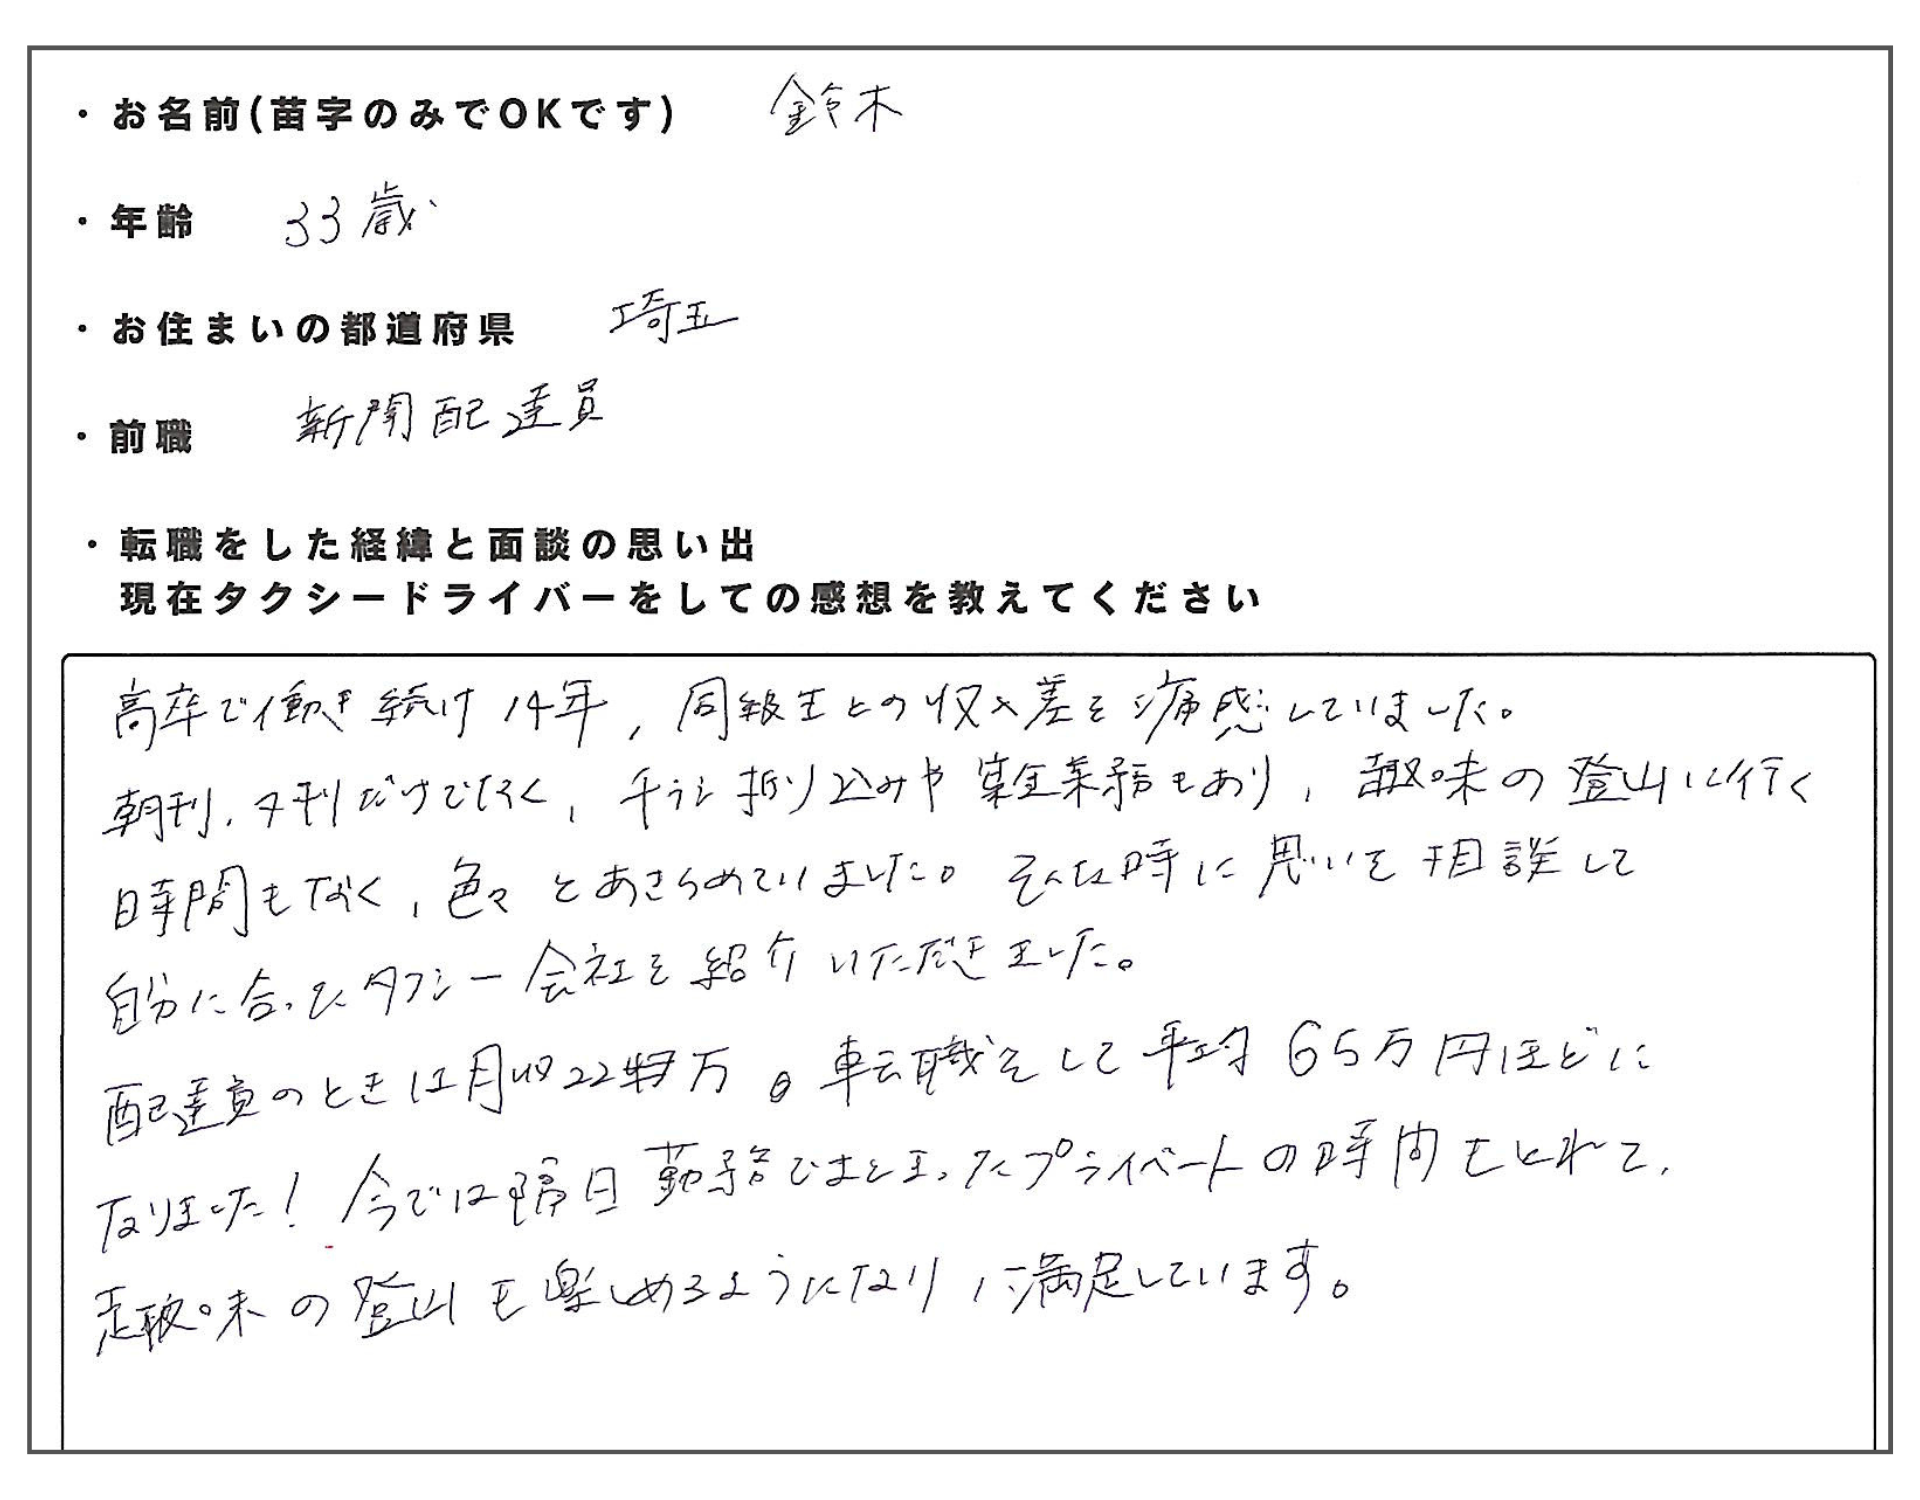 ・お名前(苗字のみでOKです) 鈴木
・年齢 33歳
・お住まいの都道府県 埼玉
・前職 新聞配達員
・転職をした経緯と面談の思い出
現在タクシードライバーをしての感想を教えてください
高卒で働き続け14年，同級生との収入差を痛感していました。
朝刊，夕刊だけでなく，チラシ折り込みや集金業務もあり，趣味の登山に行く
時間もなく，色々とあきらめていました。そんな時に思いを相談して
自分に合ったタクシー会社を紹介いただきました。
配達員のときは月収22万。転職をして平均65万円ほどに
なりました！今では隔日勤務でまとまったプライベートの時間もとれて，
趣味の登山も楽しめるようになり満足しています。